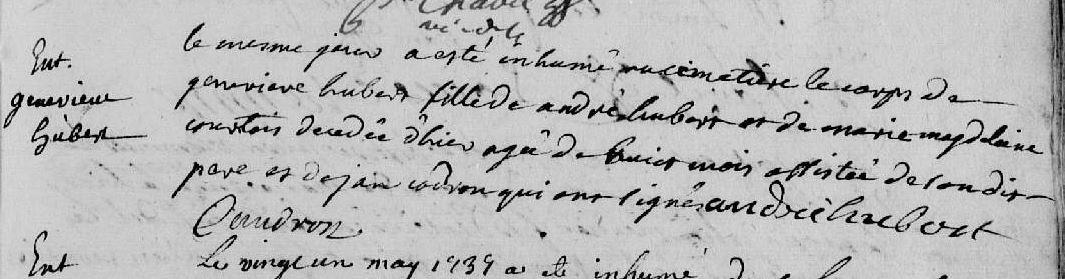 Ent.
genevieve
hubert
le mesme jour a esté inhumé au cimetiere le corps de
genevieve hubert fille de andré hubert et de marie magdelaine
courtois decedée d'hier agée de huict mois assistée de son dit
pere et de jan codron qui ont signés andré hubert
Caudron
Ent
Le vingt un may 1739 a été inhumé